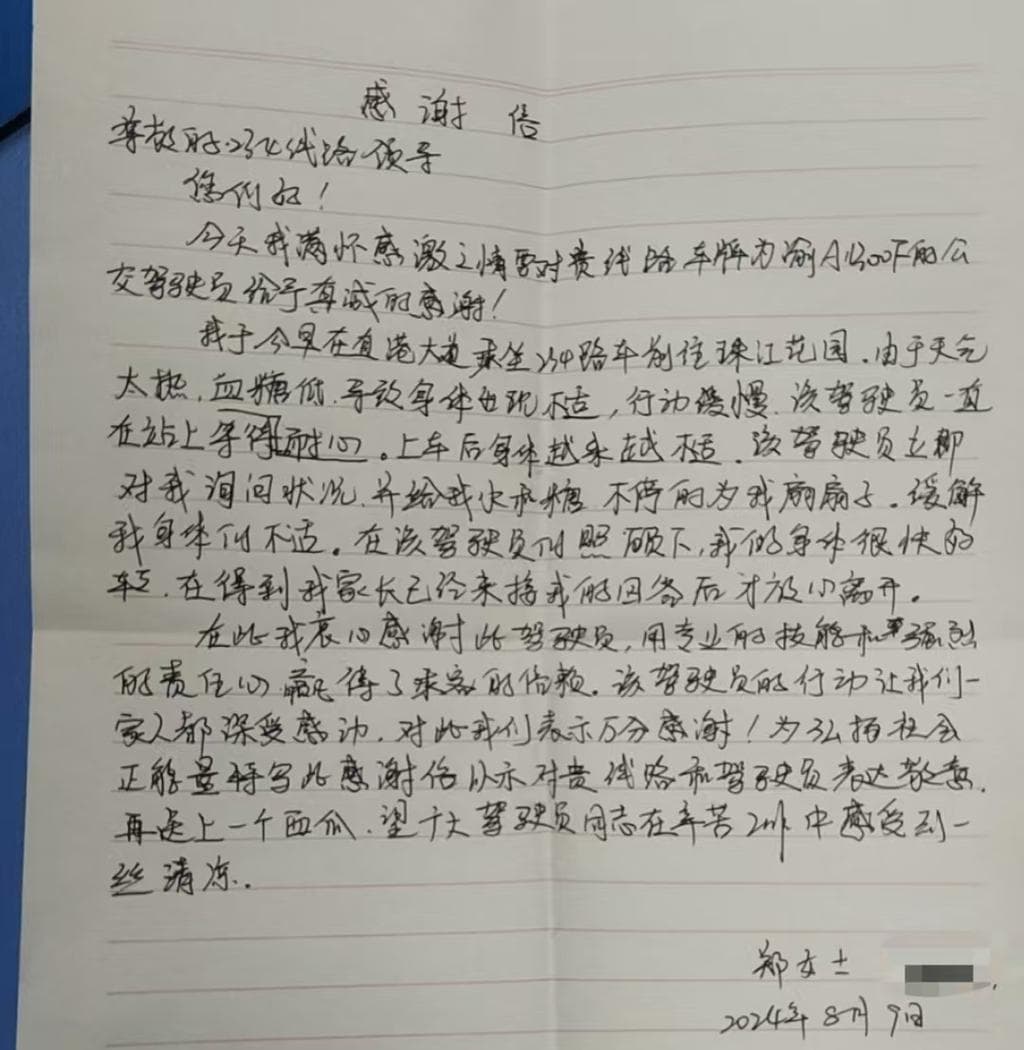 感谢信
尊敬的234线路领导
您们好！
今天我满怀感激之情要对贵线路车牌为渝A1300下的公
交驾驶员给予真诚的感谢！
我于今早在直港大道乘坐234路车前往珠江花园．由于天气
太热．血糖低．导致身体出现不适，行动缓慢．该驾驶员一直
在站上等得耐心。上车后身体越来越不适．该驾驶员立即
对我询问状况．并给我水和糖 不停的为我扇扇子。缓解
我身体的不适。在该驾驶员的照顾下，我的身体很快好
转．在得到我家长已经来接我的回答后才放心离开。
在此我衷心感谢此驾驶员，用专业的技能和强烈
的责任心赢得了乘客的信赖．该驾驶员的行动让我们一
家人都深受感动．对此我们表示万分感谢！为弘扬社会
正能量特写此感谢信以示对贵线路和驾驶员表达敬意．
再送上一个西瓜．望广大驾驶员同志在辛苦工作中感受到一
丝清凉．
郑女士
2024年8月9日